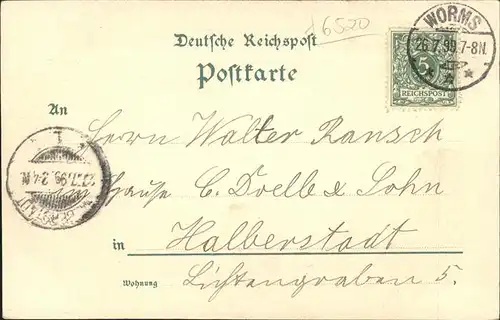 6520
Deutsche Reichspost
Postkarte
WORMS
26.7.99.7-8N.
5
REICHSPOST
An
Herrn Walter Ransch
im Hause C. Doelle & Sohn
in Halberstadt
Lichtengraben 5.
Wohnung